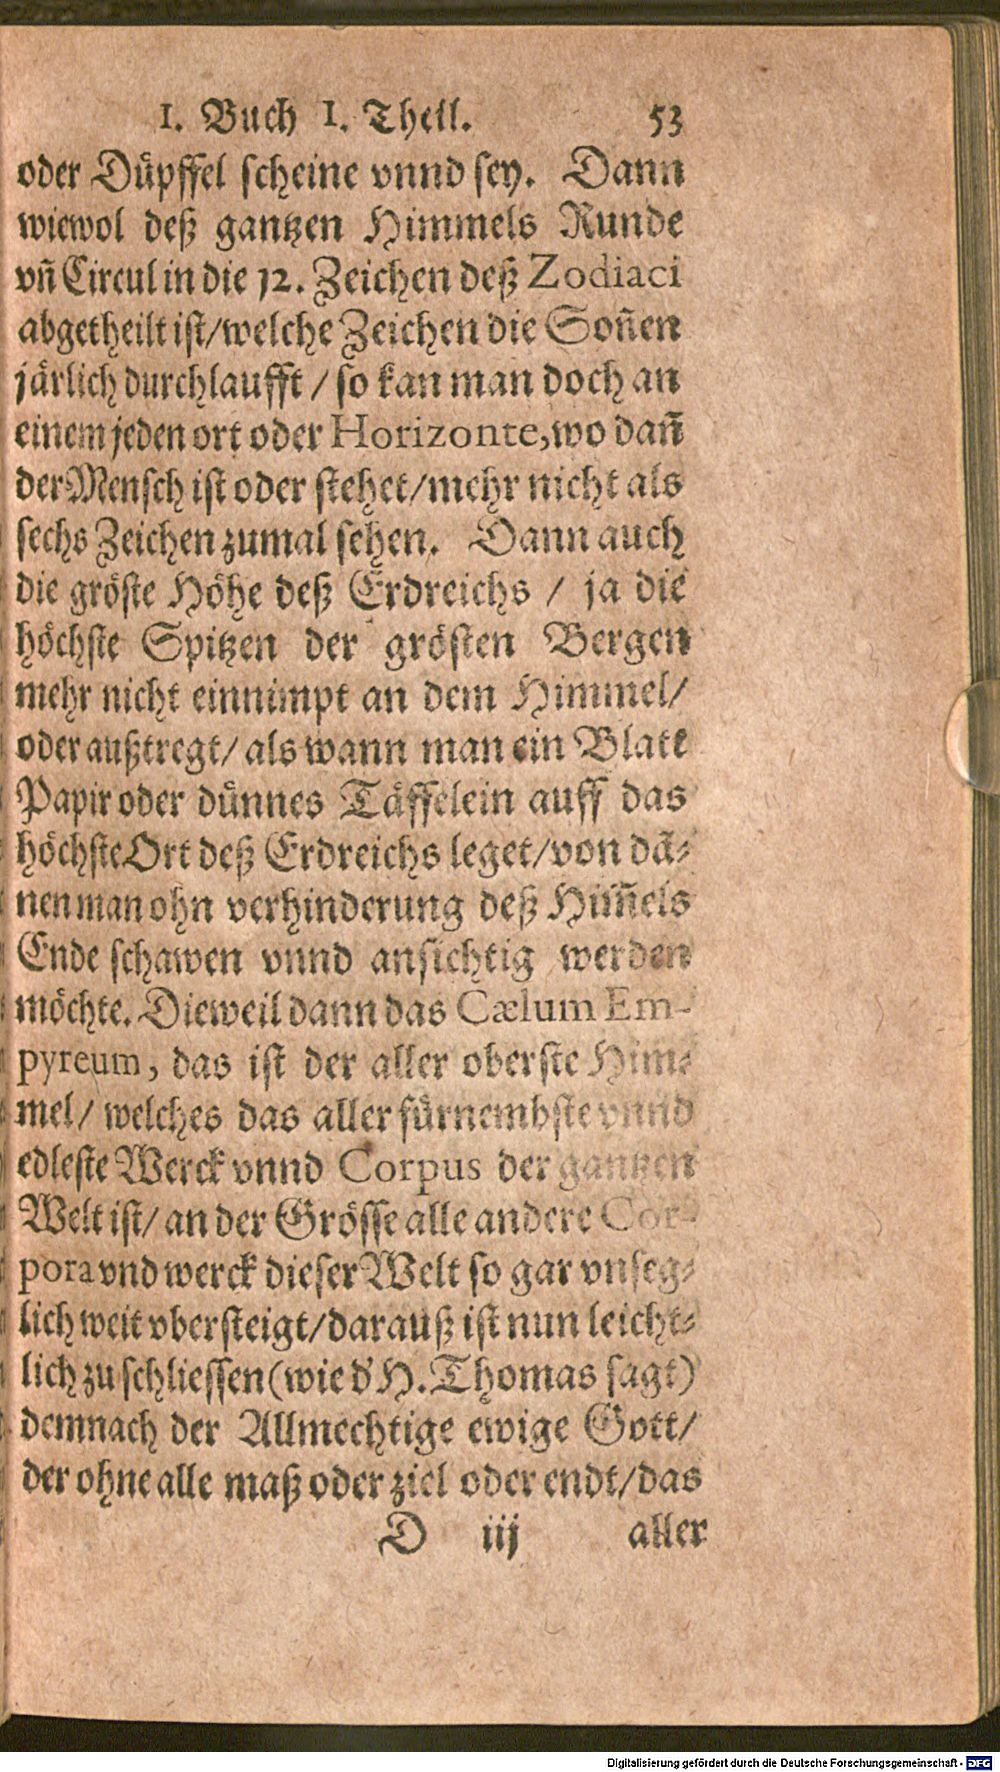 1. Buch 1. Theil. 53
oder Düpffel scheine vnnd sey. Dann
wiewol deß gantzen Himmels Runde
vñ Circul in die 12. Zeichen deß Zodiaci
abgetheilt ist/welche Zeichen die Soñen
järlich durchlaufft / so kan man doch an
einem jeden ort oder Horizonte, wo dañ
der Mensch ist oder stehet/mehr nicht als
sechs Zeichen zumal sehen. Dann auch
die gröste Höhe deß Erdreichs / ja die
höchste Spitzen der grösten Bergen
mehr nicht einnimpt an dem Himmel/
oder außtregt/ als wann man ein Blatt
Papir oder dünnes Täffelein auff das
höchste Ort deß Erdreichs leget/von dä-
nen man ohn verhinderung deß Him̃els
Ende schawen vnnd ansichtig werden
möchte. Dieweil dann das Cælum Em-
pyreum, das ist der aller oberste Him-
mel/ welches das aller fürnembste vnnd
edleste Werck vnnd Corpus der gantzen
Welt ist/ an der Grösse alle andere Cor-
pora vnd werck dieser Welt so gar vnseg-
lich weit vbersteigt/darauß ist nun leicht-
lich zu schliessen (wie d' H. Thomas sagt)
demnach der Allmechtige ewige Gott/
der ohne alle maß oder ziel oder endt/das
D iij aller
Digitalisierung gefördert durch die Deutsche Forschungsgemeinschaft - DFG